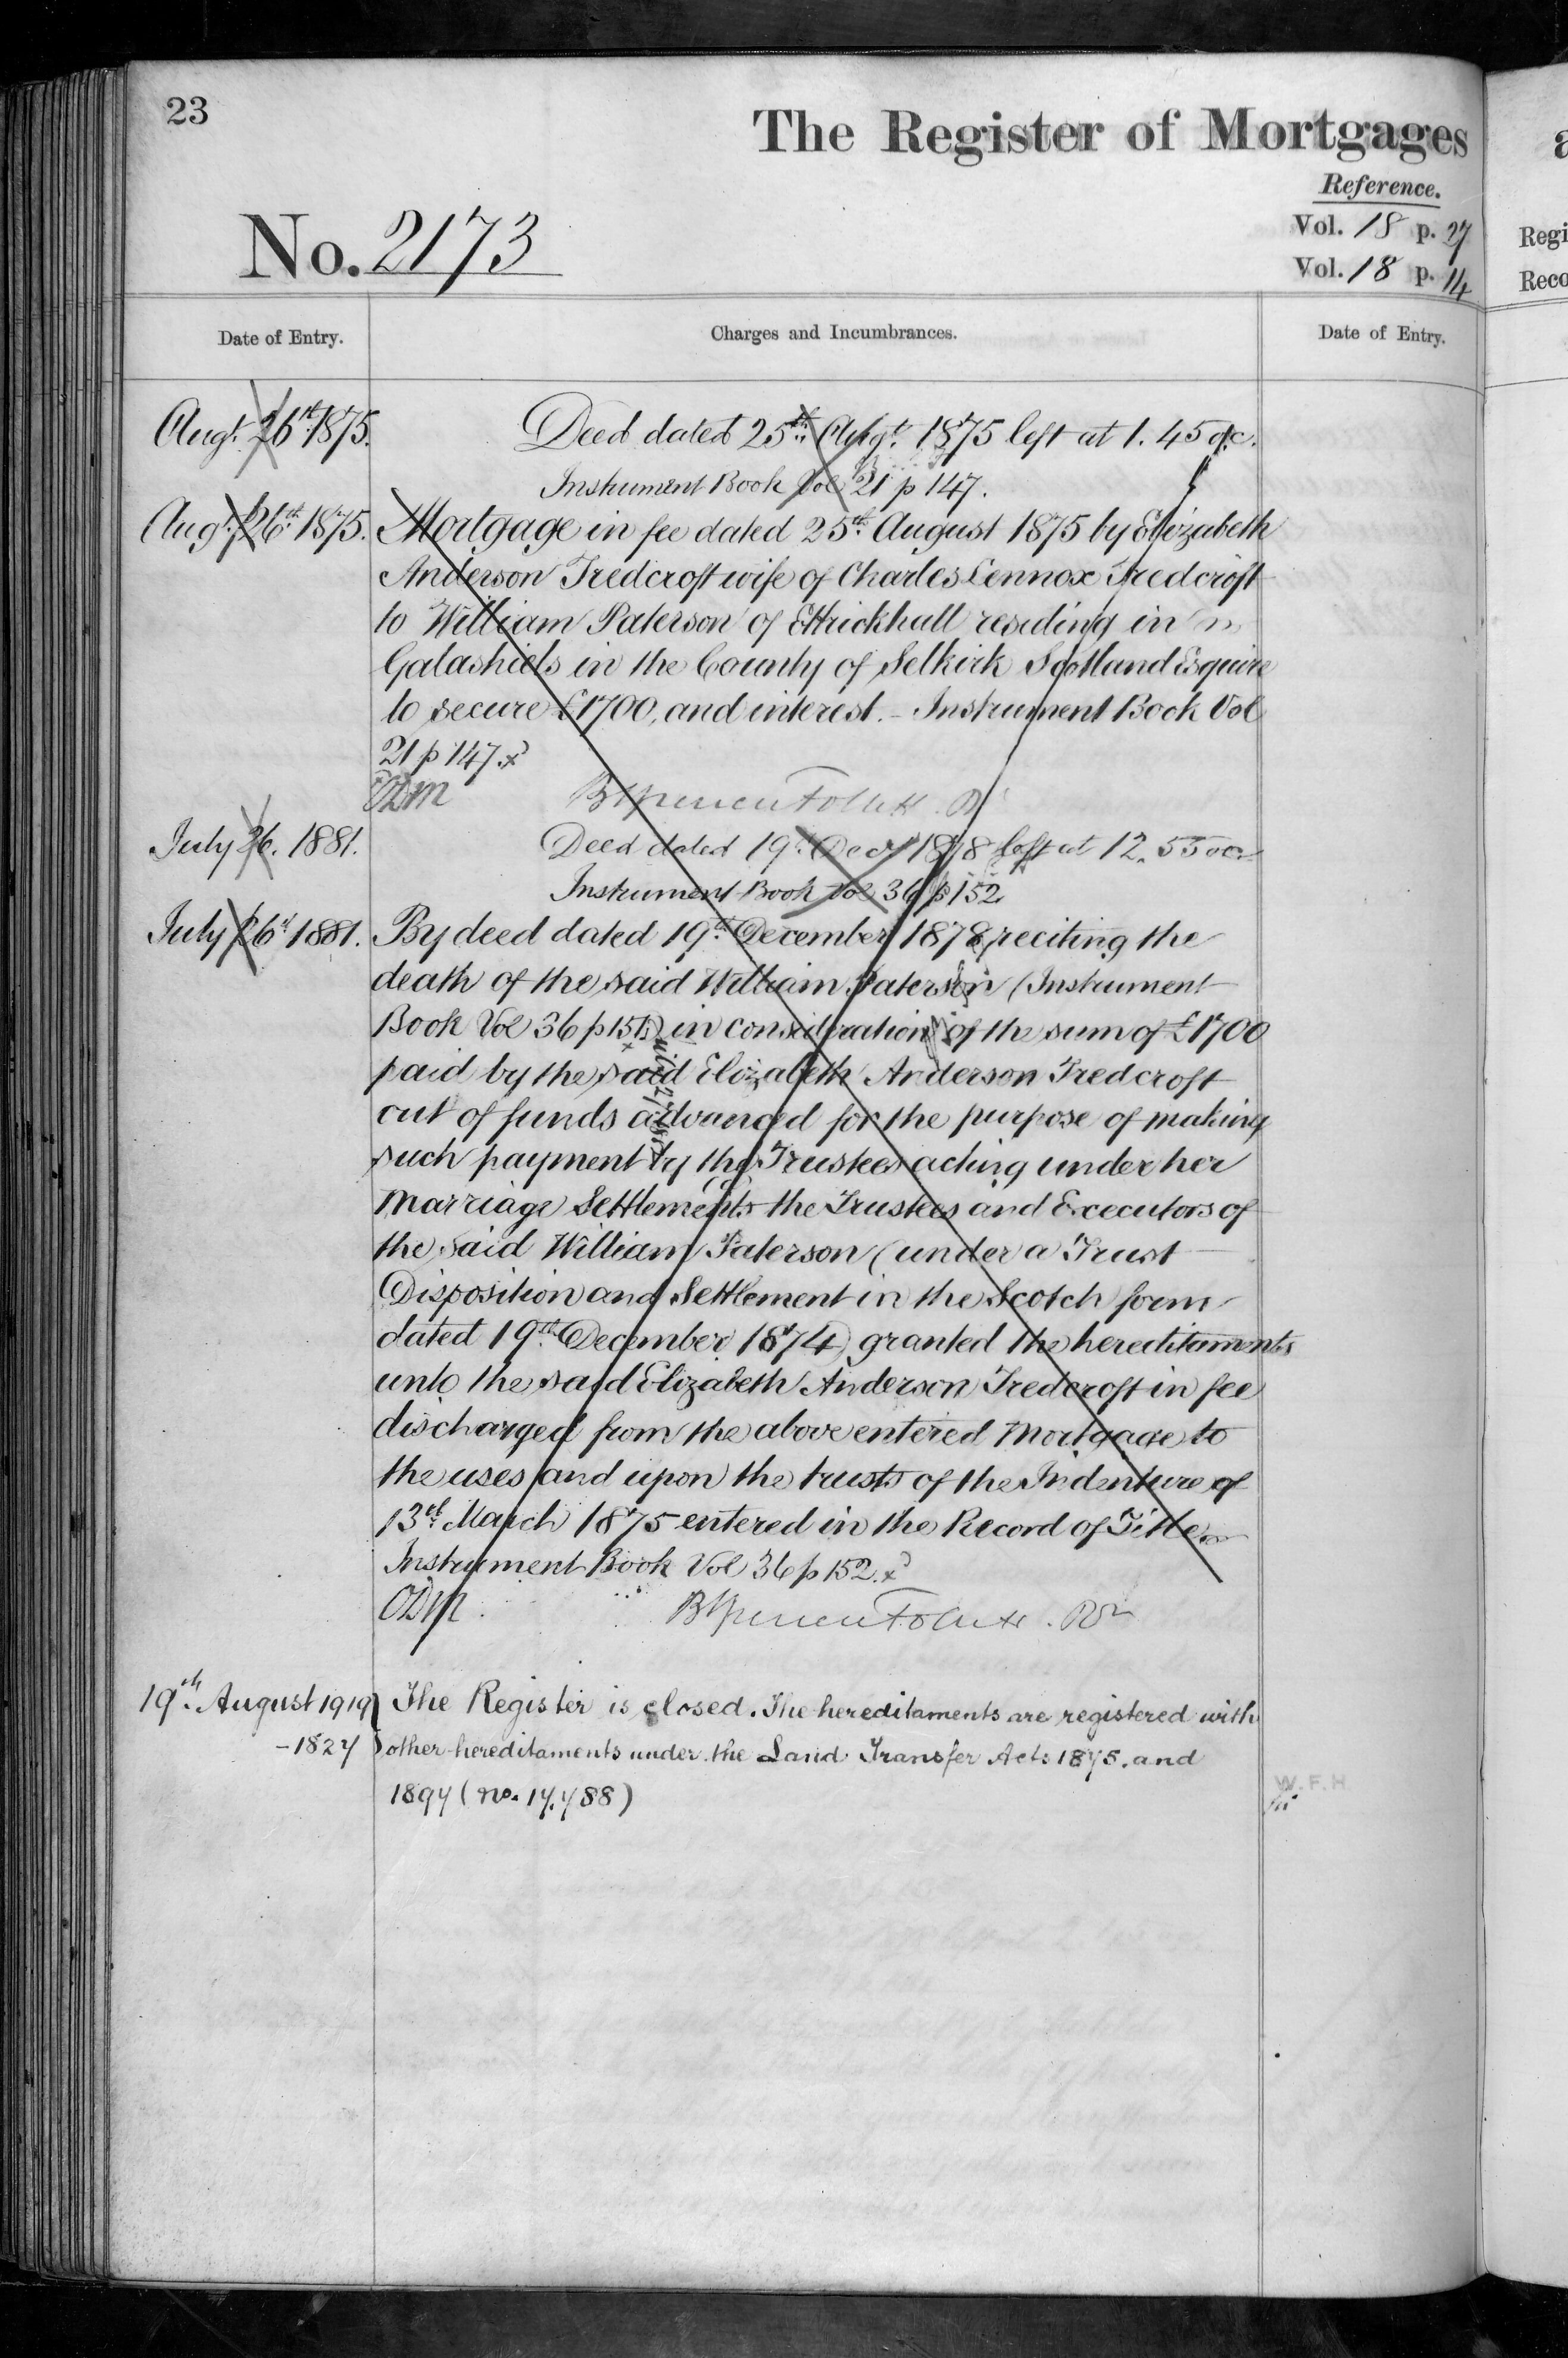 23
The Register of Mortgages
Reference.
No. 2173
Vol. 18 p. 27
Vol. 18 p. 14
Regi
Reco
Date of Entry.
Charges and Incumbrances.
Date of Entry.
Augt. 26th 1875.
Deed dated 25th Augt. 1875 left at 1.45
Instrument Book Vol 21 p 147.
Augt. 26th 1875.
Mortgage in fee dated 25th August 1875 by Elizabeth
Anderson Tredcroft wife of Charles Lennox Tredcroft
to William Paterson of Ettrickhall residing in
Galashiels in the County of Selkirk Scotland Esquire
to secure £1700, and interest. - Instrument Book Vol
21 p 147. x
ODM
July 26. 1881.
Deed dated 19th Decr 1878 left at 12.55
Instrument Book Vol 36 p 152
July 26th 1881.
By deed dated 19th December 1878, reciting the
death of the said William Paterson (Instrument
Book Vol 36 p 151) in consideration of the sum of £1700
paid by the said Elizabeth Anderson Tredcroft
out of funds advanced for the purpose of making
such payment by the Trustees acting under her
Marriage Settlement the Trustees and Executors of
the said William Paterson (under a Trust
Disposition and Settlement in the Scotch form
dated 19th December 1874) granted the hereditaments
unto the said Elizabeth Anderson Tredcroft in fee
discharged from the above entered Mortgage to
the uses and upon the trusts of the Indenture of
13th March 1875 entered in the Record of Title
Instrument Book Vol 36 p 152. x
ODM.
19th August 1919
The Register is closed. The hereditaments are registered with
-1827
other hereditaments under the Land Transfer Acts 1875 and
1897 (no. 17,788)
W.F.H